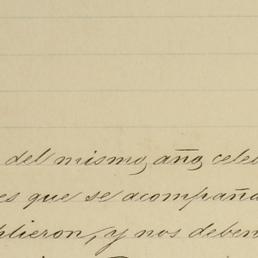 del mismo año cele
es que se acompaña
plieron, y nos deben